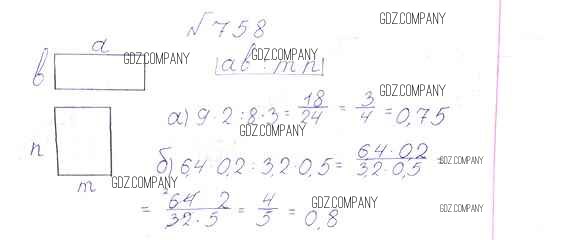 №758
GDZ.COMPANY
a
b
GDZ.COMPANY
GDZ.COMPANY
ab : mn
GDZ.COMPANY
а) 9·2:8·3 = 18/24 = 3/4 = 0,75
GDZ.COMPANY
n
б) 6,4·0,2 : 3,2·0,5 = 6,4·0,2/3,2·0,5 =
GDZ.COMPANY
m
GDZ.COMPANY
= 64 2/32·5 = 4/5 = 0,8
GDZ.COMPANY
GDZ.COMPANY